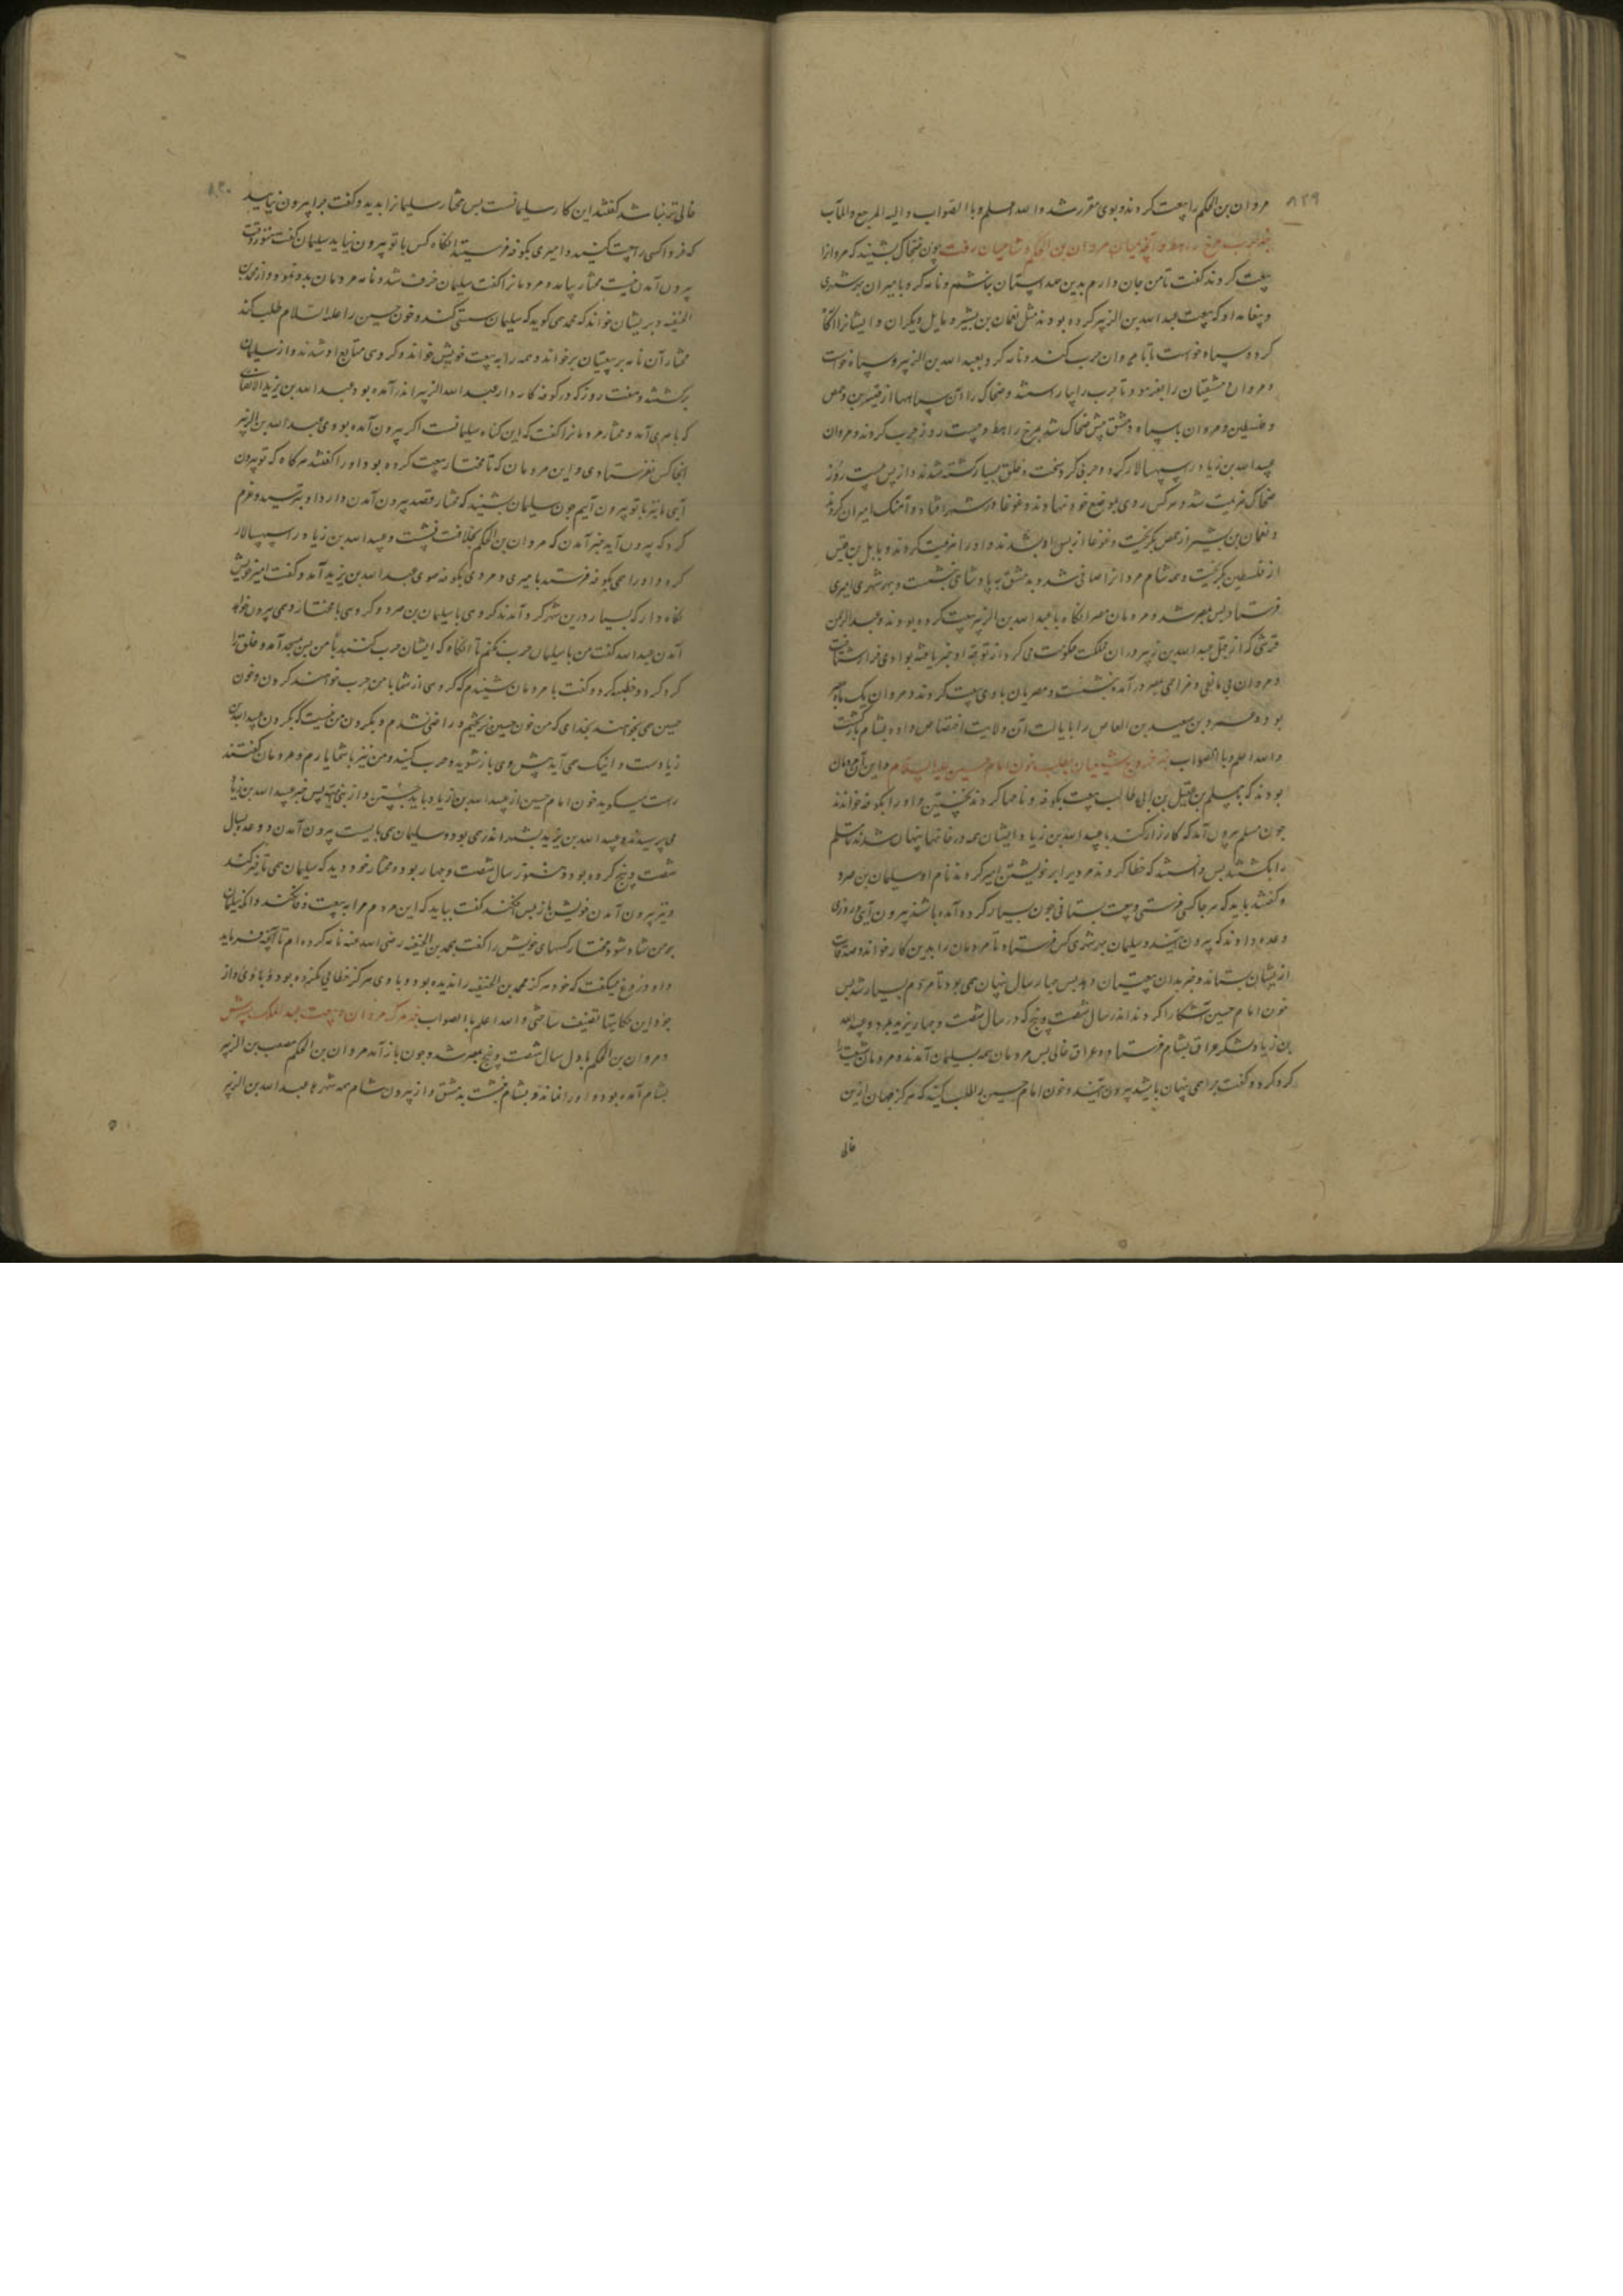 ۸۲۹
مروان بن الحکم را بیعت کردند و بوی مقرر شد والله اعلم وبا الصواب والیه المرجع والمآب
میان مروان بن الحکم و شامیان رفت چون ضحاک بشنید که مروانرا
بیعت کردند گفت تا من جان دارم بدین همداستان نباشم و نامه کرد بامیران هر شهری
که بیعت عبدالله بن الزبیر کرده بودند مثل نعمان بن بشیر و دیگران و ایشانرا آگاه
کرد و سپاه خواست تا با مروان حرب کنند و نامه کرد بعبد الله بن الزبیر و سپاه خواست
و مروان دمشقیان را بفرمود تا حرب را بیاراستند و ضحاک را آن سپاهها از قنسرین و حمص
و فلسطین و مروان با سپاه دمشق پیش ضحاک شد بمرج راهط و بیست روز حرب کردند و مروان
عبیدالله بن زیاد را سپهسالار کرد و حربی کرد سخت و خلقی بسیار کشته شدند و از پس بیست روز
ضحاک هزیمت شد و هر کس روی بموضع خود نهادند و غوغا در شهر افتاد و آهنک امیران کردند
و نعمان بن بشیر از حمص بگریخت و غوغا از پس او بشدند و او را
از فلسطین بگریخت و همه شام مروانرا صافی شد و بدمشق به پادشاهی بنشست و بهر شهری امیری
فرستاد پس بمصر شد و مردمان مصر آنگاه با عبدالله بن الزبیر بیعت کرده بودند و عبدالرحمن
قرشی که از قبل عبدالله بن زبیر در ان مملکت حکومت می کرد از توجه او خبر یافته
و مروان بی مانعی و مزاحمی بمصر درآمده بنشست و مصریان با وی بیعت کردند و مروان یک ماه بمصر
بود و عمرو بن سعید بن العاص را بایالت آن ولایت اختصاص داده بشام بازگشت
والله اعلم وبا الصواب خبر خروج شیعیان بطلب خون امام حسین علیه السلام و این آن مردمان
بودند که بمسلم بن عقیل بن ابی طالب بیعت بکوفه و نامها کردند نخستین و او را بکوفه خواندند
چون مسلم بیرون آمد که کارزار کند با عبیدالله بن زیاد ایشان همه در خانها پنهان شدند تا مسلم
را بکشتند پس دانستند که خطا کردند مردیرا بر خویشتن امیر کردند نام او سلیمان بن صرد
و گفتند باید که هر جا کس فرستی و بیعت بستانی چون بسیار کرد آمده باشند بیرون آیی و روزی
وعده دادند که بیرون آیند و سلیمان بهر شهری کس فرستاد تا مردمان را بدین کار خواند و صدقات
ازیشان بستاند و خبر بدان بیعتیان دهد پس چهار سال پنهان همی بود تا مردم بسیار شد پس
خون امام حسین آشکارا کردند اندر سال شصت و پنج که در سال شصت و چهار یزید بمرد و عبیدالله
بن زیاد لشکر عراق بشام فرستاد و عراق خالی پس مردمان همه بسلیمان آمدند و مردمان شیعت را
گرد کرد و گفت چرا همی پنهان باشید بیرون آیید و خون امام حسین را طلب کنید که هرگز جهان ازین
خالی
۸۳۰
خالی تر نباشد گفتند این کار سلیمانست پس مختار سلیمانرا بدید و گفت چرا بیرون نیایید
که فردا کسی را بیعت کنند و امیری بکوفه فرستند آنگاه کس با تو بیرون نیاید سلیمان گفت هنوز وقت
بیرون آمدن نیست مختار بیامد و مردمانرا گفت سلیمان خرف شد و نامه مردمان بدو نمود و از محمد بن
الحنفیه و بریشان خواند که محمد می گوید که سلیمان سستی کند و خون حسین را علیه السلام طلب کند
مختار آن نامه بر بیعتیان برخواند و همه را به بیعت خویش خواند و گروهی متابع او شدند و از سلیمان
برگشتند و هفت روز که در کوفه کاردار عبدالله الزبیر اندر آمده بود عبدالله بن یزید الانصاری
که بامیری آمد و مختار مردمانرا گفت که این گناه سلیمانست اگر بیرون آمده بودی عبدالله بن الزبیر
اینجا کس نفرستادی و این مردمان که با مختار بیعت کرده بود او را گفتند هرگاه که تو بیرون
آیی ما نیز با تو بیرون آییم چون سلیمان بشنید که مختار قصد بیرون آمدن دارد او بترسید و عزم
کرد که بیرون آید خبر آمدن که مروان بن الحکم بخلافت بنشست و عبیدالله بن زیاد را سپهسالار
کرد و او را همی بکوفه فرستد بامیری و مردی بکوفه سوی عبدالله بن یزید آمد و گفت امیر خویش
نگاه دار که بسیار درین شهر گرد آمدند گروهی با سلیمان بن صرد و گروهی با مختار و همی بیرون خواهند
آمدن عبدالله گفت من با سلیمان حرب نکنم تا آنگاه که ایشان حرب کنند با من پس بمسجد آمد و خلق را
گرد کرد و خطبه کرد و گفت با مردمان شنیدم که گروهی از شما با من حرب خواهند کردن و خون
حسین می بخواهند بخدای که من خون حسین نریختم و راضی نشدم و بگردن من نیست که بگردن عبیدالله بن
زیادست و اینک می آید پیش وی باز شوید و حرب کنید و من نیز با شما یارم مردمان گفتند
راست میگوید خون امام حسین از عبیدالله بن زیاد باید جستن و از بنی امیه پس خبر عبیدالله بن زیاد
می پرسیدند و عبدالله بن یزید بشهر اندر می بود و سلیمان می بایست بیرون آمدن و وعده بسال
شصت و پنج کرده بود و هنوز سال شصت و چهار بود و مختار خود دید که سلیمان همی تاخیر کند
و نیز بیرون آمدن خویش باز پس افکند گفت بباید که این مردم مرا به بیعت وفا کنند
بر من شاد شود و مختار کسهای خویش را گفت بمحمد بن الحنفیه رضی الله عنه نامه کرده ام تا آنچه فرماید
و او دروغ میگفت که خود هرگز محمد بن الحنفیه را ندیده بود و با وی هرگز خطابی نکرده بود
بود این حکایتها تصنیف ساختی والله اعلم با الصواب خبر مرگ مروان و بیعت عبدالملک پسرش
و مروان بن الحکم باول سال شصت و پنج بمصر شد و چون باز آمد مروان بن الحکم مصعب بن الزبیر
بشام آمده بود و او را نماند و بشام بنشست بدمشق و از بیرون شام همه شهرها عبدالله بن الزبیر